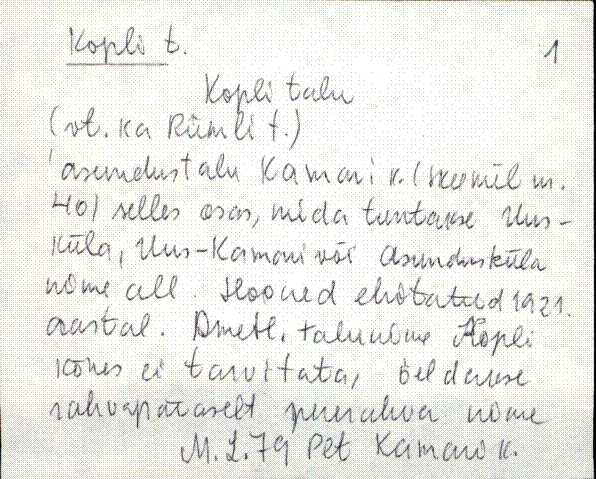 Kopli t.
1
Kopli talu
(vt. ka Rümli t.)
asundustalu Kamari k. (
40) selles osas, mida tuntakse Uus-
Küla, Uus-Kamari või Asundusküla
nime all. Hooned ehitatud 1921.
aastal. Ametl. talunime Kopli
kõnes ei tarvitata, öeldakse
rahvapäraselt pererahva nime
M. L. 79 Pet Kamari k.